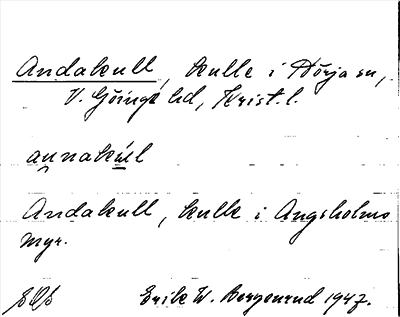 Andakull, kulle i Dörja sn,
V. Göinge hd, Krist. l.
annakul
Andakull, kulle i Ängsholms
myr.
Erik W. Bergenrud 1947.